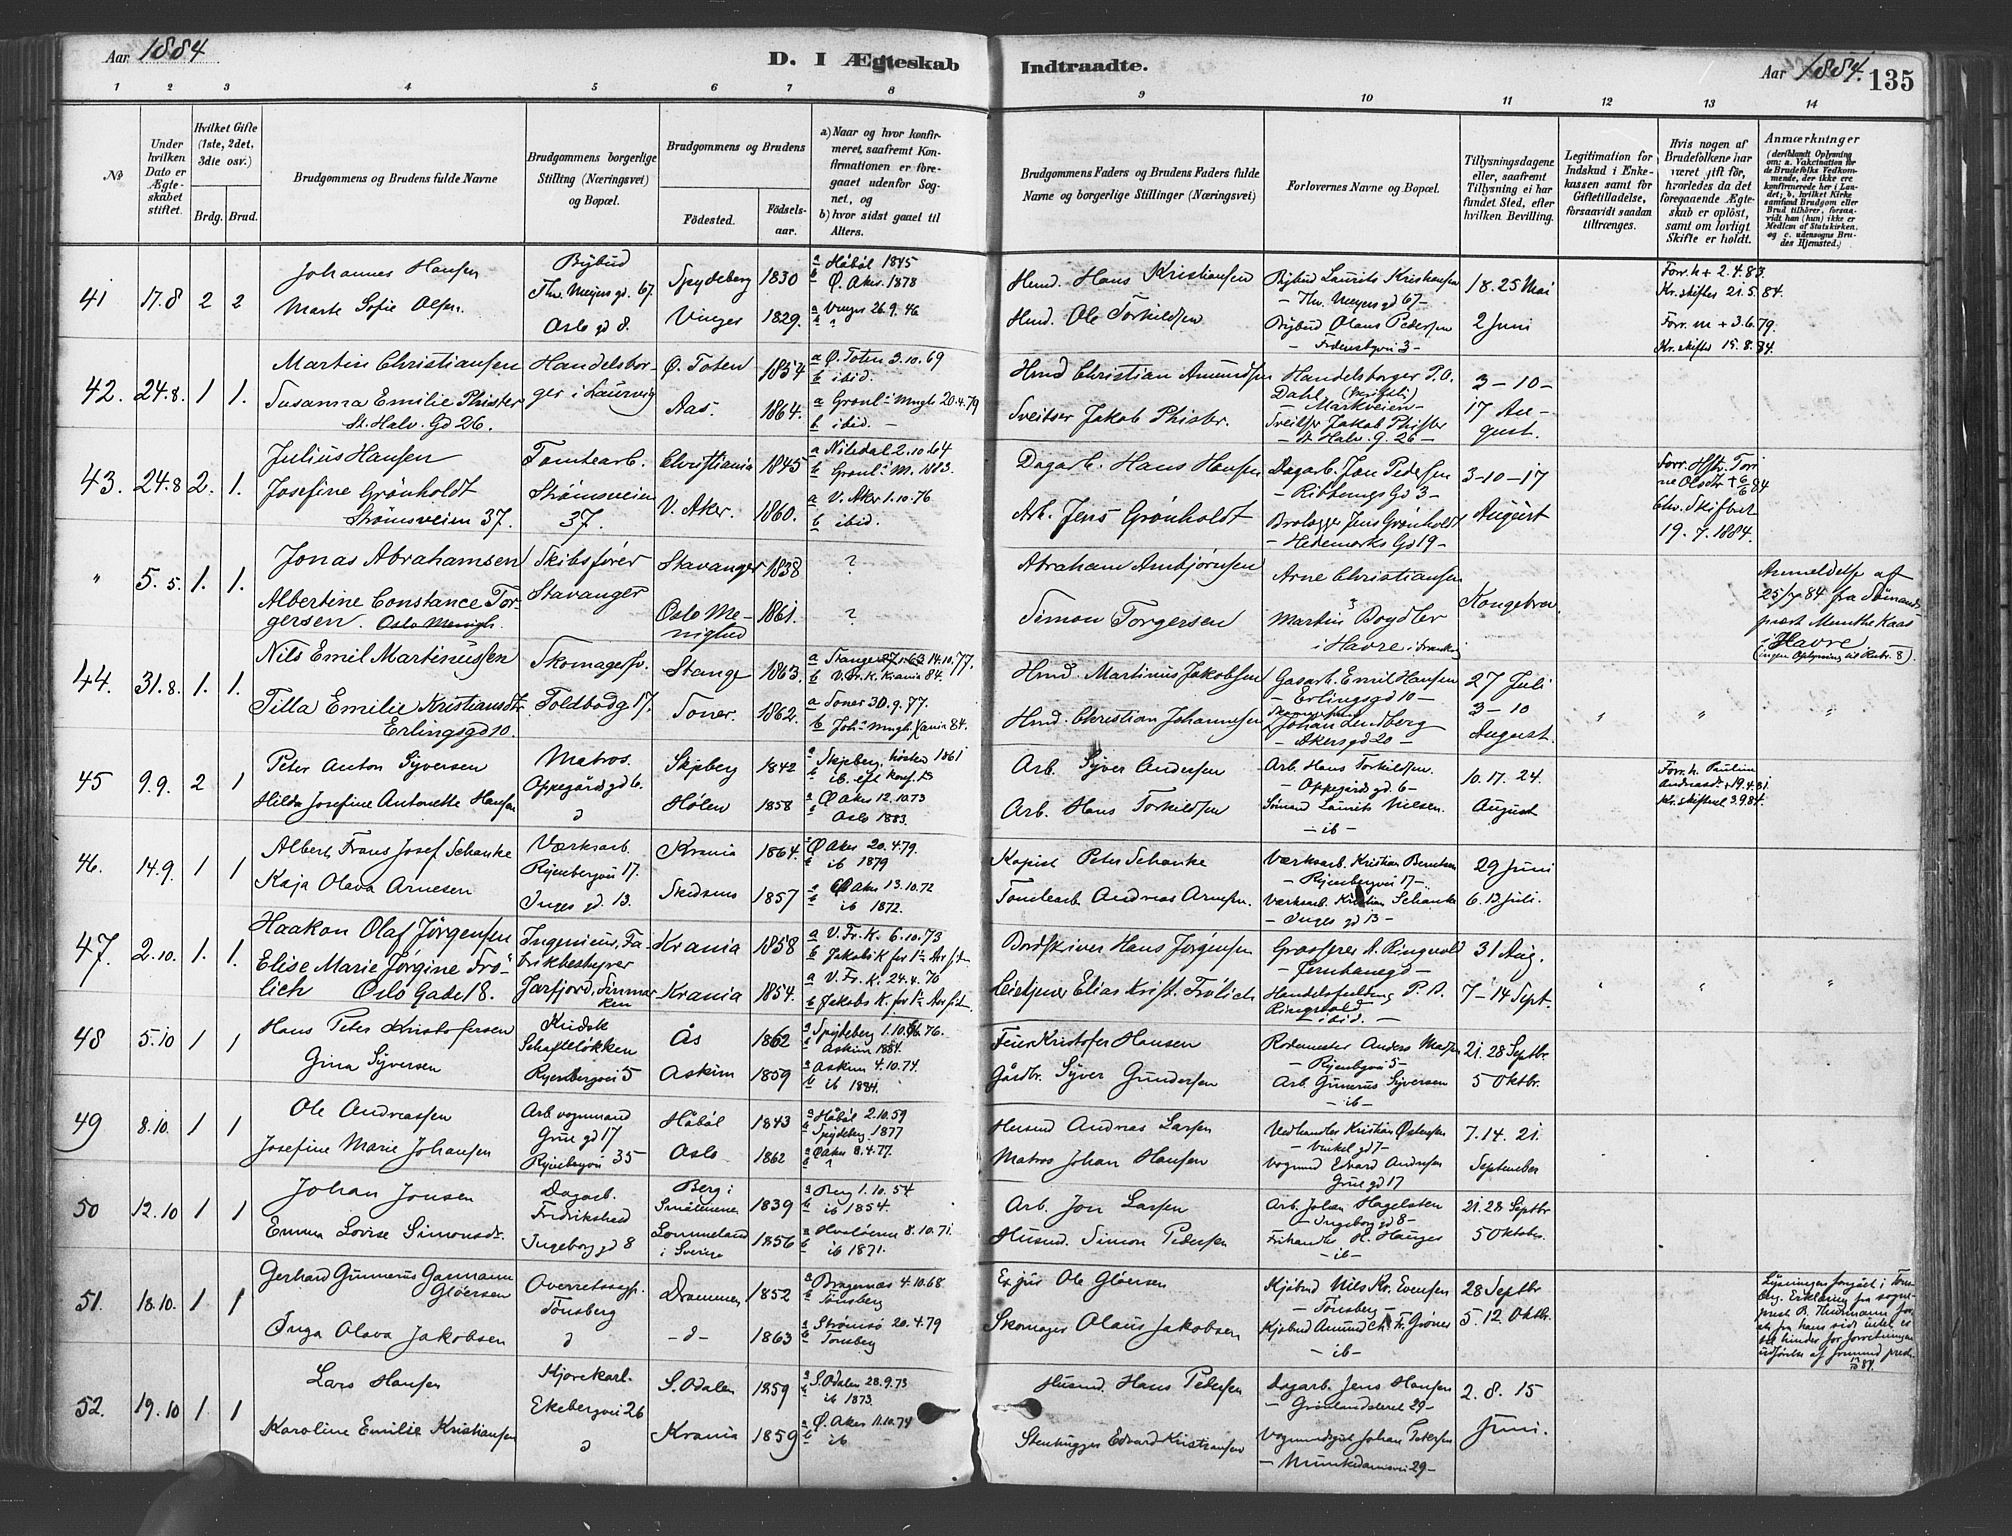 Aar 1884
D. I Ægteskab Indtraadte.
Aar 1884. 135
1 2 3 4 5 6 7 8 9 10 11 12 13 14
№
Under hvilken Dato er Ægteskabet stiftet.
Hvilket Gifte (1ste, 2det, 3die osv.)
Brdg. Brud.
Brudgommens og Brudens fulde Navne
Brudgommens borgerlige Stilling (Næringsvei) og Bopæl.
Brudgommens og Brudens
Fødested.
Fødselsaar.
a) Naar og hvor konfirmeret, saafremt Konfirmationen er foregaaet udenfor Sognet, og
b) hvor sidst gaaet til Alters.
Brudgommens Faders og Brudens Faders fulde Navne og borgerlige Stillinger (Næringsvei)
Forlovernes Navne og Bopæl.
Tillysningsdagene eller, saafremt Tillysning ei har fundet Sted, efter hvilken Bevilling.
Legitimation for Indskud i Enkekassen samt for Giftetilladelse, forsaavidt saadan tiltrænges.
Hvis nogen af Brudefolkene har været gift før, hvorledes da det foregaaende Ægteskab er opløst, samt om lovligt Skifte er holdt.
Anmærkninger
(deriblandt Oplysning om: a. Vakcination for de Brudefolks Vedkommende, der ikke ere konfirmerede her i Landet; b. hvilket Kirkesamfund Brudgom eller Brud tilhører, forsaavidt han (hun) ikke er Medlem af Statskirken, og c. udensogns Brudes Hjemsted.)
41 17.8 2 2
Johannes Hansen
Marte Sofie Olsen
Bybud
Thv. Meyers gd. 67.
Oslo gd 8.
Spydeberg 1830
Vinger 1829.
a Håbøl 1845
b Ø. Aker 1878
a Vinger 26.9.46
b "
Husmd. Hans Kristiansen
Husmd. Ole Torkildsen
Bybud Laurits Kristiansen
- Thv. Meyers gd 67 -
Bybud Olaus Pedersen
18. 25 Mai
2 Juni
Forr. h + 2.4.83.
Kr. skifter 21.5.84.
Forr. m + 3.6.79.
Kr. skifter 15.8.84
42. 24.8. 1 1.
Martin Christiansen
Susanna Emilie Phister
St. Halv. Gd 26.
Handelsborger i Laurvig
Ø. Toten 1854
Aas. 1864.
a Ø. Toten 3.10.69
b ibid.
a Grønl.s Mngh 20.4.79
b ibid. -
Hmd Christian Amundsen
Sveitser Jakob Phister.
Handelsborger P.O.
Dahl
- Markveien -
Sveitser Jakob Phister
- St. Halv. g. 26 -
3 - 10 -
17 August.
43. 24.8 2. 1.
Julius Hansen
Josefine Grönholdt
Strømsveien 37.
Tomtearb.
Strømsveien
37.
Christiania 1845
V. Aker. 1860.
a Nitedal 2.10.64
b Grønl.s M. 1883.
a V. Aker 1.10.76
b ibid.
Dagarb. Hans Hansen
Arb. Jens Grönholdt
Dagarb. Jan Pedersen
- Ribbungs Gd 3 -
Brolægger Jens Grönholdt
- Hedemarks Gd 19 -
3-10-17
August
Chr. Skifter
19.7.1884.
" 5.5. 1. 1.
Jonas Abrahamsen
Albertine Constance Torgersen. Oslo Menigh.
Skibsfører
Stavanger
Stavanger 1838
Oslo Menighed 1861.
?
?
Abraham Ambjørnsen
Simon Torgersen
Arne Christiansen
Martin Boydler
i Havre i Frankrig
Kongebrev
Anmeldelse af
25/7 84 fra Sømands
præst Munthe Kaas
i Havre
(ingen Oplysning til Rubr. 8).
44. 31.8. 1. 1.
Nils Emil Martinussen
Tilla Emilie Kristiansdt.
Erlingsgd 10.
Skomagersv.
Toldbodg 17.
Stange 1863.
Soner. 1862.
a Stange 14.10.77.
b V. Fr. K. Krania 84.
a Soner 30.9.77.
b Joh.s Mngh. Krania 84.
Hmd. Martinus Jakobsen
Hmd. Christian Johannesen
Gasarb. Emil Hansen
- Erlingsgd 10 -
Johan Lendberg
- Akersgd 20 -
27 Juli
3 - 10
August.
" " "
45 9.9. 2 1
Peter Anton Syversen
Hilda Josefine Antonette Hansen
Matros.
Oppegårds gd 6.
Skjeberg 1842
Hølen 1858
a Skjeberg, høsten 1861
b ib. eft. konf.
a Ø Aker 12.10.73
b Oslo 1883.
Arb. Syver Andersen
Arb. Hans Torkildsen
Arb. Hans Torkildsen.
Oppegårds gd 6 -
Sømand Laurits Nielsen.
- ib -
10. 17. 24.
August
Forr. h. Pauline
Andreasdt + 19.4.81
Kr. skiftevel 3.9.84.
46. 14.9. 1 1
Albert Frans Josef Schanke
Kaja Olava Arnesen
Værksarb.
Ryenbergvei 17.
Inges gd. 13.
Krania 1864.
Skedsmo 1857
a Ø Aker 20.4.79.
b ib 1879
a Ø Aker 13.10.72
b ib 1872.
Kopist Peter Schanke
Tomtearb Andreas Arnesen.
Værksarb. Kristian Berntsen
- Ryenbergvei 17 -
Værksarb. Kristian Schanke
- Inges gd 13 -
29 Juni
6. 13 Juli.
47. 2.10. 1. 1.
Haakon Olaf Jørgensen
Elise Marie Jørgine Frölich Oslo Gade 18.
Ingenieur, Fabrikbestyrer
Jarfjord, Finmarken
Krania 1858
Krania 1854.
a V. Fr. K. 6.10.73
b Jakobs K for 1½ Aar sit.
a V. Fr. K. 24.4.70
b Jakobs K. for 1½ Aar sit.
Bordskriver Hans Jørgensen
Elias Krist. Frölich
Grosserer A. Ringvold
- Jernbanegd -
Handelsfuldmg P. A.
Ringvold
- ibid. -
31 Aug.
7 - 14 Sept.
" " "
48 5.10 1 1
Hans Peter Kristofersen
Gina Syversen
Kudsk
Schafteløkken
Ryenbergvei 5
Ås 1862
Askim 1859
a Spydeberg 1.10.76.
b Askim 1884.
a Askim 4.10.74.
b ib 1884.
Feier Kristofer Hansen
Gårdbr. Syver Gundersen
Rodemester Anders Madsen
- Ryenbgvei 5 -
Arb. Gunerus Syversen
- ib -
21. 28 Septbr.
5 Oktbr.
49 8.10. 1 1
Ole Andreassen
Josefine Marie Johansen
Arb vognmand
Grue gd 17
Ryenbergvei 35
Håbøl 1843
Oslo 1862
a Håbøl 2.10.59
b Spydeberg 1877
a Ø Aker 8.4.77.
b "
Husmd Andreas Larsen
Matros Johan Hansen
Vedhandler Kristian Østensen
- Vinkel gd 7 -
Vognmd Edvard Andresen
Grue gd 17
7. 14. 21.
September
50 12.10 1 1
Johan Jonsen
Emma Lovise Simonsdt.
Dagarb.
Fredrikshald
Ingeborg gd 8
Berg i
Smålenene 1839
Lommeland
i Sverige 1856
a Berg 1.10.54
b ib 1854.
a Hvaløerne 8.10.71.
b ib 1871.
Arb. Jon Larsen
Husmd. Simon Pedersen
Arb. Johan Hagelsten
- Ingeborg gd 8 -
Frihandler H. Hauges
- ib -
21. 28 Septbr
5 Oktober.
51. 18.10. 1 1
Gerhard Gunnerus Gasmann
Glöersen
Inga Olava Jakobsen
Overretssagf.
Tönsberg
Drammen 1852
- d - 1863
a Bragernæs 4.10.68.
b Tönsberg
a Strømsø 20.4.79
b Tønsberg
Ex jur Ole Glöersen
Skomager Olaus Jakobsen
Kjøbmd Nils Kr. Evensen
- Tönsberg -
Kjøbmd Amund Chr. Fr. Gröner
- ib -
28 Septbr
5. 12. Oktbr.
Lysningen foregået i Tönsberg. Erklæring fra sognepræst R. Thurmann
52. 19.10 1. 1
Lars Hansen
Karoline Emilie Kristiansen
Kjørekarl.
Ekebergvei 26
S. Odalen 1859
Krania 1859
a S. Odalen 28.9.73
b ib 1873.
a Ø. Aker 11.10.74
b ib
Husmd. Hans Pedersen
Stenhugger Edvard Kristiansen
Dagarb. Jens Hansen
- Grønlandsleret 29 -
Johan Petersen
- Munkedamsvei 29 -
2. 8. 15
Juni.